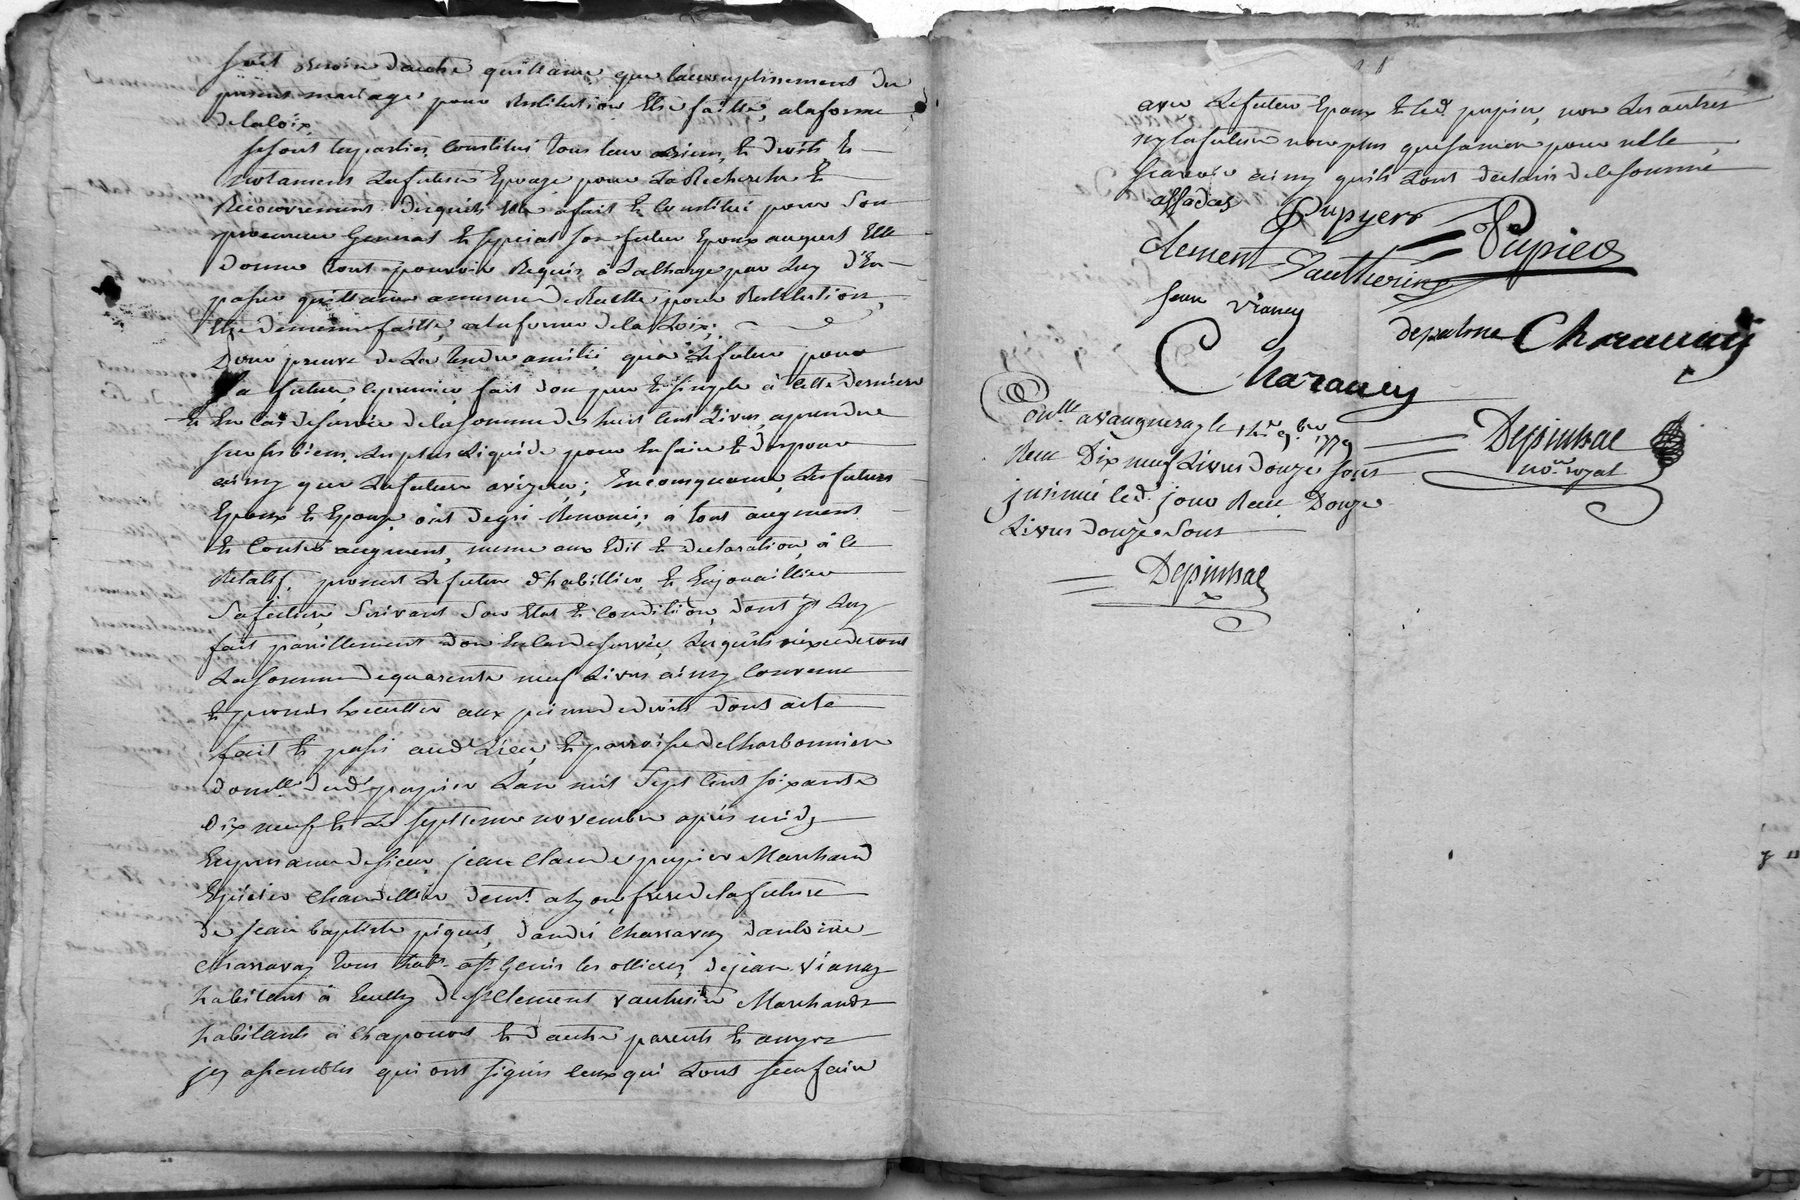 soit besoin d'autre quittance que laccomplissement du
present mariage, pour restitution Etre faitte, alaforme
delaloix,
se sont les parties, constitué tous leur biens, & droits &
notament la future Epouze pour la Recherche &
Recouvrement desquels Elle a fait & constitué pour son
procureur General & special son futur Epoux auquel Elle
donne tout pouvoir Requis à la charge par Luy d'En
passer quittance amesure de Recette pour Restitution,
Etre de meme faitte, alaforme de la Loix;
Pour preuve de la tendre amitié, que le futur pour
la future, le premier, fait don pur & simple à cette derniere
& En cas de survie de la somme de huit cent Livres, aprendre
sur ses biens, les plus Liquide pour En faire & disposer
ainsy que la future avizera; En consequence, les futurs
Epoux & Epouze, ont de gré Renoncés, à tout augment
& contre augment, meme aux Edit & declaration, à ce
Relatif, promet le futur d'habillier, & Enjouaillier
sa future, suivant son Etat & condition, dont il luy
fait pareillement don En cas de survie, lesquels n'excederont
La somme de quarente neuf Livres ainsy convenu
& promis Executter aux peines de droits dont acte
fait & passé aud Lieu, & parroisse de Charbonnier
domlle dud pupier Lan mil sept cent soixante
dix neuf & le septieme novembre après midy
En presence de sieur jean Claude pupier Marchand
Epicier chandellier demt alyon frere de la future
de jean baptiste piquet, d'andré Charravay d'antoine
Charravay tous habt. a st Genis les ollieres, de jean Vianay
habitant à Eully de st Clement vautherin Marchands
habitants à Chaponost & d'autre parents & amyes
jcy assemblés qui ont signés ceux qui L'ont sceu faire
avec le futur Epoux & led. pupier, non les autres
ny la future non plus que sa mere pour ne le
scavoir ainsy quils L'ont declaré de ce sommé
Pupyer Pupier
clement Vautherin
jean vianey
depalme Charauay
Charauey
Conlle avaugneray le 9.bre 1779
Recu Dix neuf Livres douze sous
jnsinué led. jour Recu Douze
Livres douze sous
Depinhac
Depinhac
nore royal